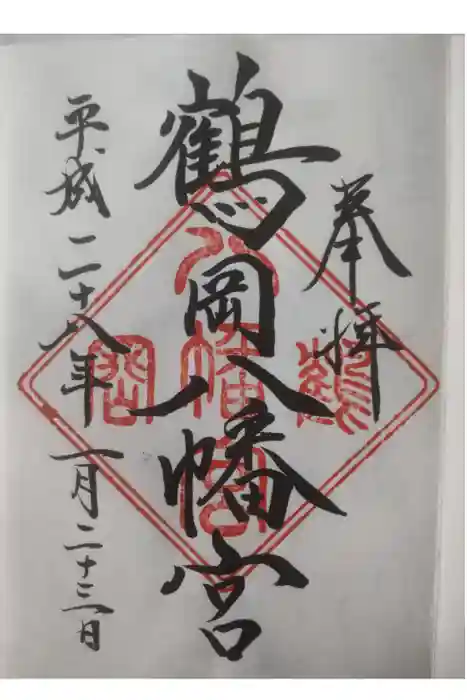 奉拝
鶴岡八幡宮
平成二十八年一月二十三日